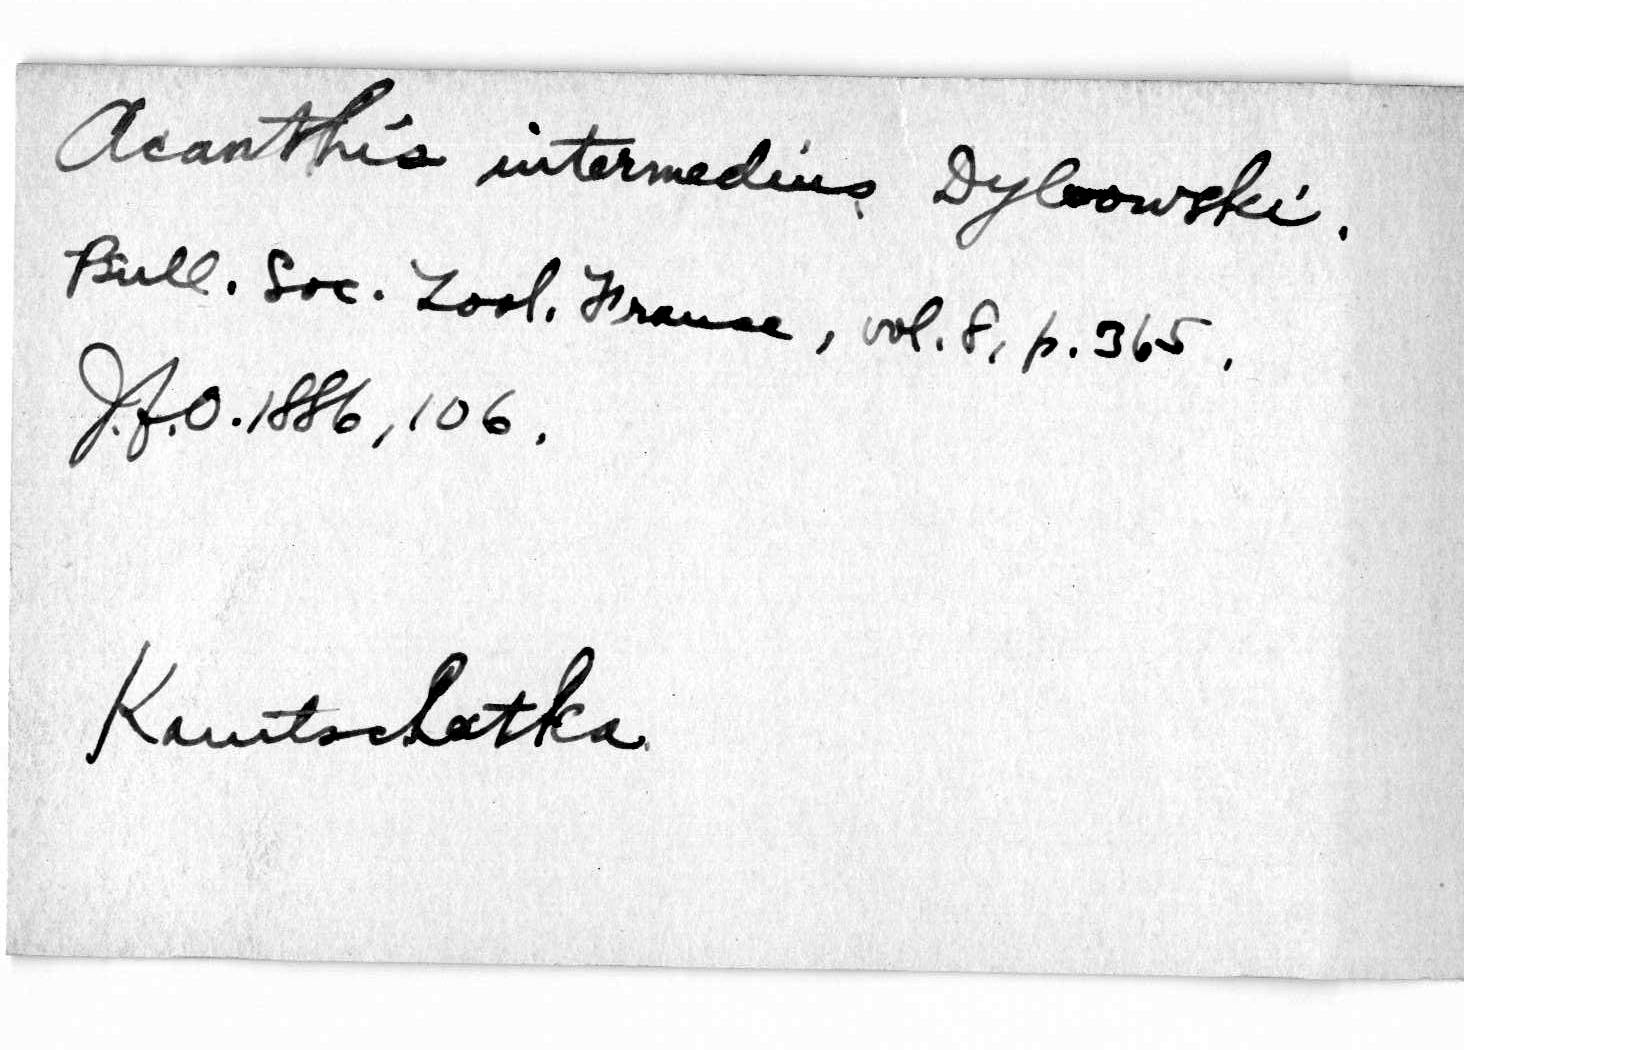 Acanthis intermedius Dybowski.
Bull. Soc. Zool. France, vol. 8, p. 365.
J.f.O. 1886, 106.
Kamtschatka.